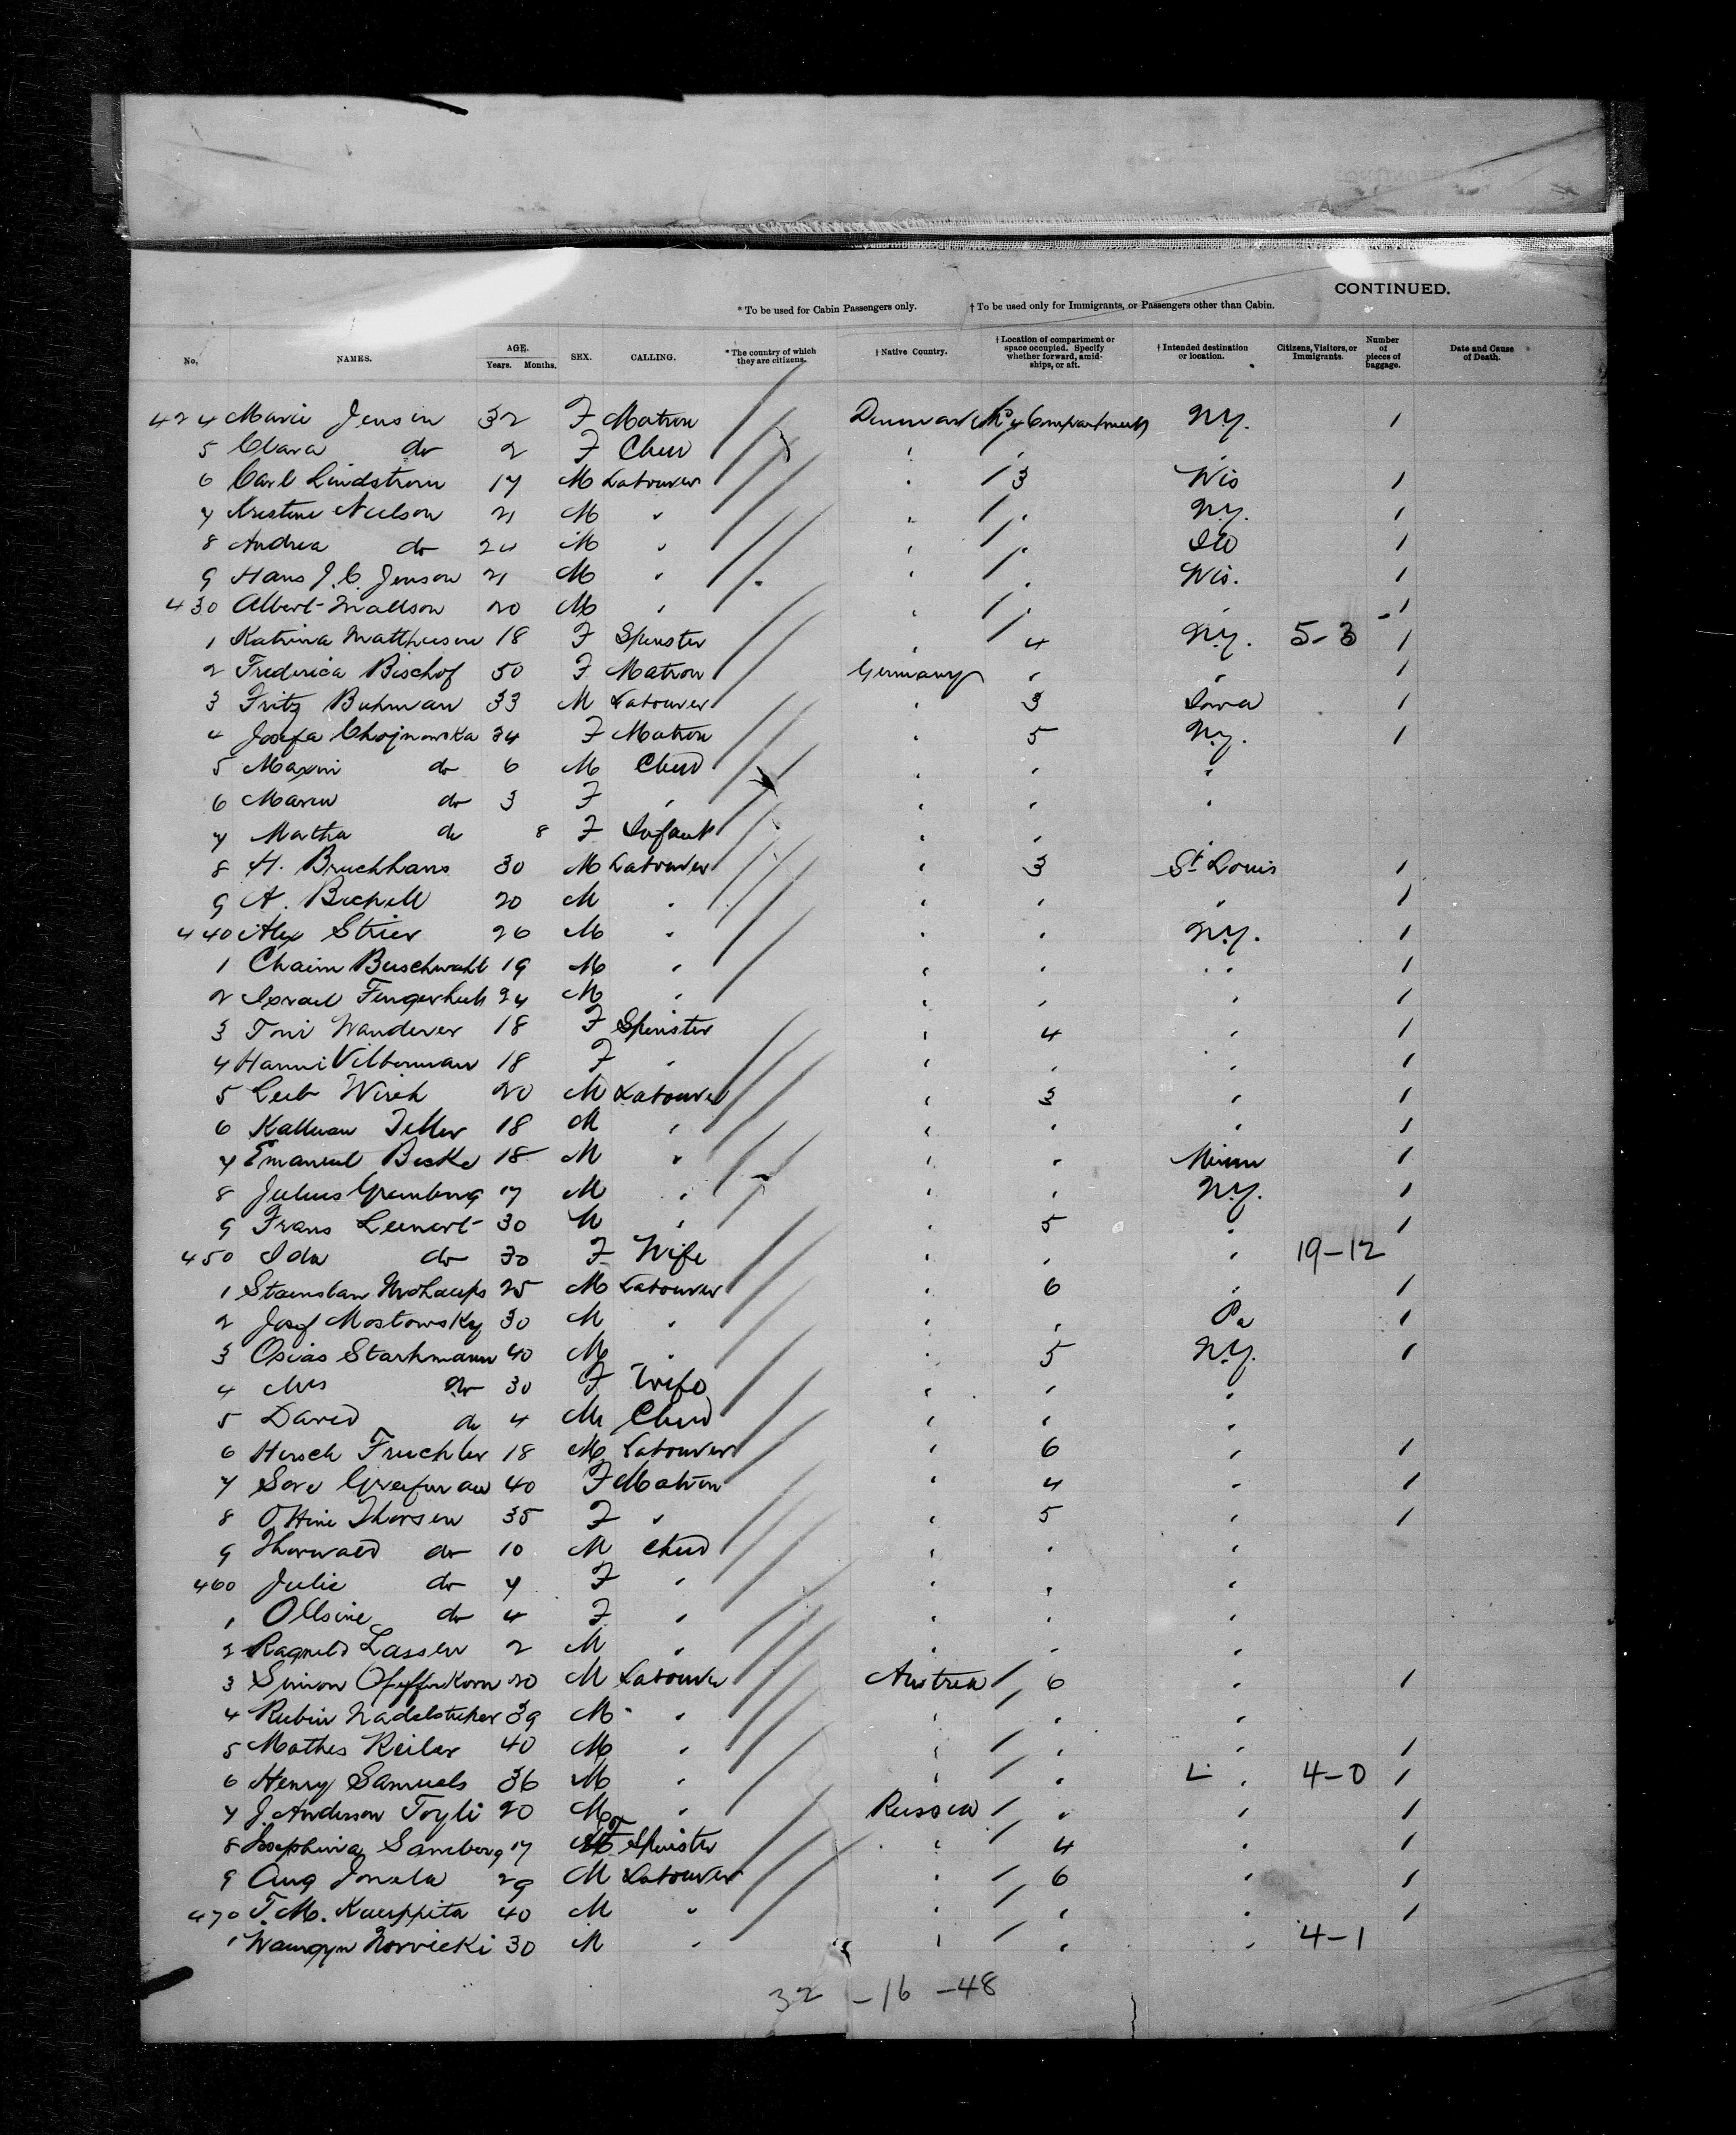 CONTINUED.
* To be used for Cabin Passengers only. † To be used only for Immigrants, or Passengers other than Cabin.
No. NAMES. AGE. Years. Months. SEX. CALLING. * The country of which they are citizens. † Native Country. † Location of compartment or space occupied. Specify whether forward, amidships, or aft. † Intended destination or location. Citizens, Visitors, or Immigrants. Number of pieces of baggage. Date and Cause of Death.
424 Marie Jensen 32 F Matron Denmark No 4 Compartment N.Y. 1
5 Clara do 2 F Child " " "
6 Carl Lindstrom 17 M Labourer " 3 Wis 1
7 Kristine Nielson 21 M " " " N.Y. 1
8 Andrea do 24 M " " " Ill 1
9 Hans J. C. Jenson 21 M " " " Wis. 1
430 Albert Mallson 20 M " " " " 1
1 Katrina Matthiesen 18 F Spinster " 4 N.Y. 5-3 1
2 Frederica Bischof 50 F Matron Germany " " 1
3 Fritz Buhman 33 M Labourer " 3 Iowa 1
4 Josefa Chojnowska 34 F Matron " 5 N.Y. 1
5 Maxin do 6 M Child " " "
6 do 3 F " " " "
7 Martha do 8 F Infant " " "
8 H. Bruchhans 30 M Labourer " 3 St Louis 1
9 A. 20 M " " " " 1
440 Alex Strier 26 M " " " N.Y. 1
1 Chaim Buschwahl 19 M " " " " 1
2 Israel Fingerhut 24 M " " " " 1
3 Toni Wanderer 18 F Spinster " 4 " 1
4 Hanni Vilberman 18 F " " " " 1
5 Leib 20 M Labourer " 3 " 1
6 Kallman Teller 18 M " " " " 1
7 Emanuel Beske 18 M " " " Minn 1
8 Julius Grunberg 17 M " " " N.Y. 1
9 Frans Leinert 30 M " " 5 " 1
450 Ida do 30 F Wife " " " 19-12
1 25 M Labourer " 6 " 1
2 Josef Mostowsky 30 M " " " Pa 1
3 Osias Starkmann 40 M " " 5 N.Y. 1
4 Mrs do 30 F Wife " " "
5 David do 4 M Child " " "
6 Hersch Fruchter 18 M Labourer " 6 " 1
7 Sore 40 F Matron " 4 " 1
8 Ottine Thorsen 35 F " " 5 " 1
9 Thorwald do 10 M Child " " "
460 Julie do 7 F " " " "
1 do 4 F " " " "
2 Lassen 2 M " " " "
3 Simon Pfefferkorn 20 M Labourer Austria 6 " 1
4 Rubin Nadelstecher 39 M " " " "
5 Mathes Keiler 40 M " " " " 1
6 Henry Samuels 36 M " " " " 4-0 1
7 J. Anderson Toyli 20 M " Russia " " 1
8 Josephina Sandberg 17 F Spinster " 4 " 1
9 Aug 29 M Labourer " 6 " 1
470 T. M. Kauppita 40 M " " " " 1
1 Norvicki 30 M " " " " 4-1
32 -16 -48